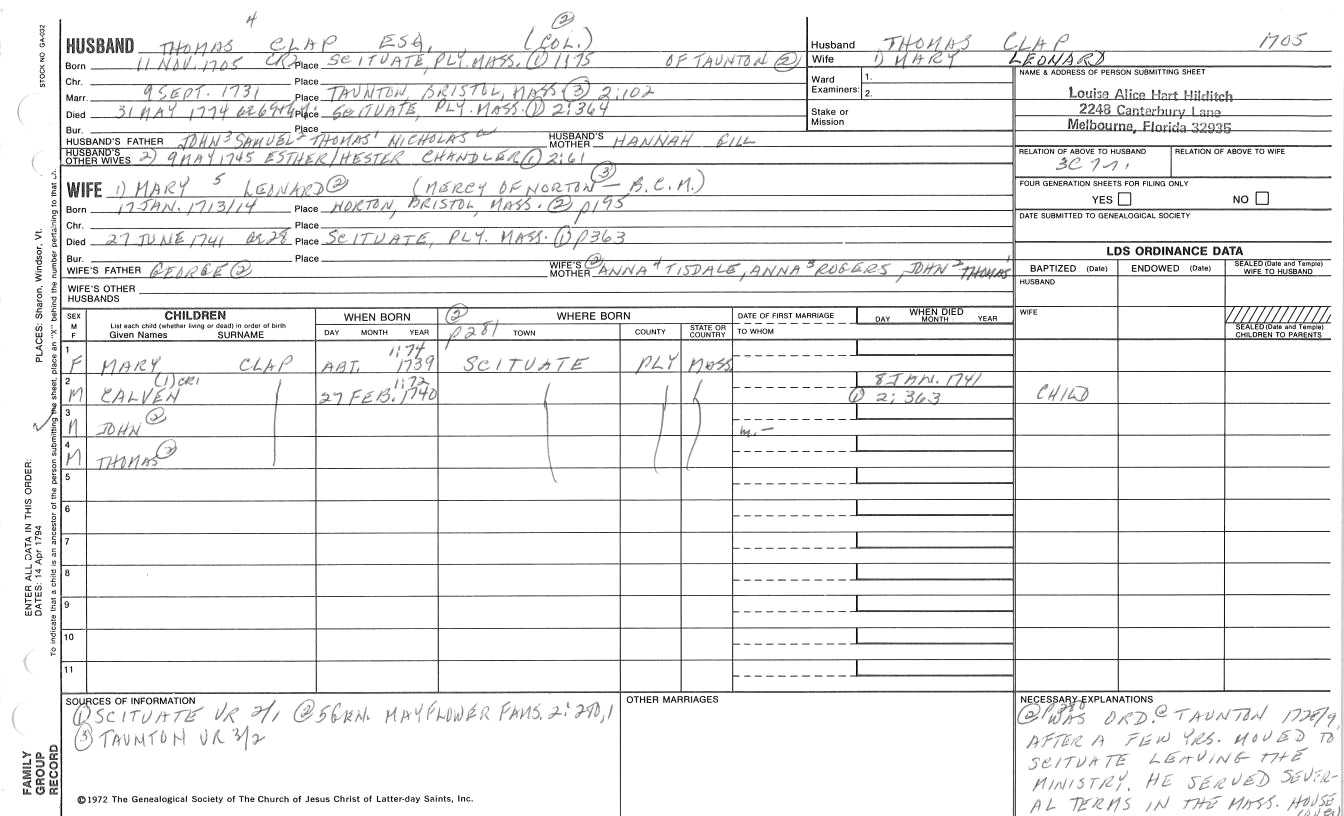 STOCK NO. GA-032
4 (2)
HUSBAND THOMAS CLAP ESQ. (COL.)
Born 11 NOV. 1705 CR2 Place SCITUATE, PLY. MASS. (1) 1:75 OF TAUNTON (2)
Chr. Place
Marr. 9 SEPT. 1731 Place TAUNTON, BRISTOL, MASS (3) 2:102
Died 31 MAY 1774 Place SCITUATE, PLY. MASS. (1) 2:364
Bur. Place
HUSBAND'S FATHER JOHN 3 SAMUEL 2 THOMAS 1 NICHOLAS HUSBAND'S MOTHER HANNAH GILL
HUSBAND'S OTHER WIVES 2) 9 MAY 1745 ESTHER/HESTER CHANDLER (1) 2:61
Husband THOMAS CLAP 1705
Wife 1) MARY LEONARD
Ward Examiners: 1.
2.
Stake or Mission
NAME & ADDRESS OF PERSON SUBMITTING SHEET
Louise Alice Hart Hilditch
2248 Canterbury Lane
Melbourne, Florida 32935
RELATION OF ABOVE TO HUSBAND RELATION OF ABOVE TO WIFE
3C 7
FOUR GENERATION SHEETS FOR FILING ONLY
YES NO
DATE SUBMITTED TO GENEALOGICAL SOCIETY
WIFE 1) MARY 5 LEONARD (2) (MERCY OF NORTON (3) - B.C.M.)
Born 17 JAN. 1713/14 Place NORTON, BRISTOL, MASS. (2) p195
Chr. Place
Died 27 JUNE 1741 ae 28 Place SCITUATE, PLY. MASS. (1) p363
Bur. Place
WIFE'S FATHER GEORGE (2) WIFE'S MOTHER (2) ANNA 4 TISDALE, ANNA 3 ROGERS, JOHN 2 THOMAS 1
WIFE'S OTHER HUSBANDS
LDS ORDINANCE DATA
BAPTIZED (Date) ENDOWED (Date) SEALED (Date and Temple) WIFE TO HUSBAND
HUSBAND
WIFE
SEALED (Date and Temple) CHILDREN TO PARENTS
SEX M F CHILDREN WHEN BORN (2) WHERE BORN DATE OF FIRST MARRIAGE WHEN DIED
List each child (whether living or dead) in order of birth
Given Names SURNAME DAY MONTH YEAR p281 TOWN COUNTY STATE OR COUNTRY TO WHOM DAY MONTH YEAR
1 1:74
F MARY CLAP ABT. 1739 SCITUATE PLY MASS
2 (1) CR1 1:72 8 JAN. 1741
M CALVEN 27 FEB. 1740 (1) 2:363 CHILD
3
M JOHN (2) m.-
4
M THOMAS (2)
5
6
7
8
9
10
11
SOURCES OF INFORMATION
(1) SCITUATE VR 2/1 (2) 5 GEN. MAYFLOWER FAMS. 2:280,1
(3) TAUNTON VR 3/2
OTHER MARRIAGES
NECESSARY EXPLANATIONS
(2) p280 WAS ORD. @ TAUNTON 1728/9,
AFTER A FEW YRS. MOVED TO
SCITUATE LEAVING THE
MINISTRY. HE SERVED SEVER-
AL TERMS IN THE MASS. HOUSE
(OVER)
©1972 The Genealogical Society of The Church of Jesus Christ of Latter-day Saints, Inc.
FAMILY GROUP RECORD
ENTER ALL DATA IN THIS ORDER:
DATES: 14 Apr 1794
PLACES: Sharon, Windsor, Vt.
To indicate that a child is an ancestor of the person submitting the sheet, place an "X" behind the number pertaining to that